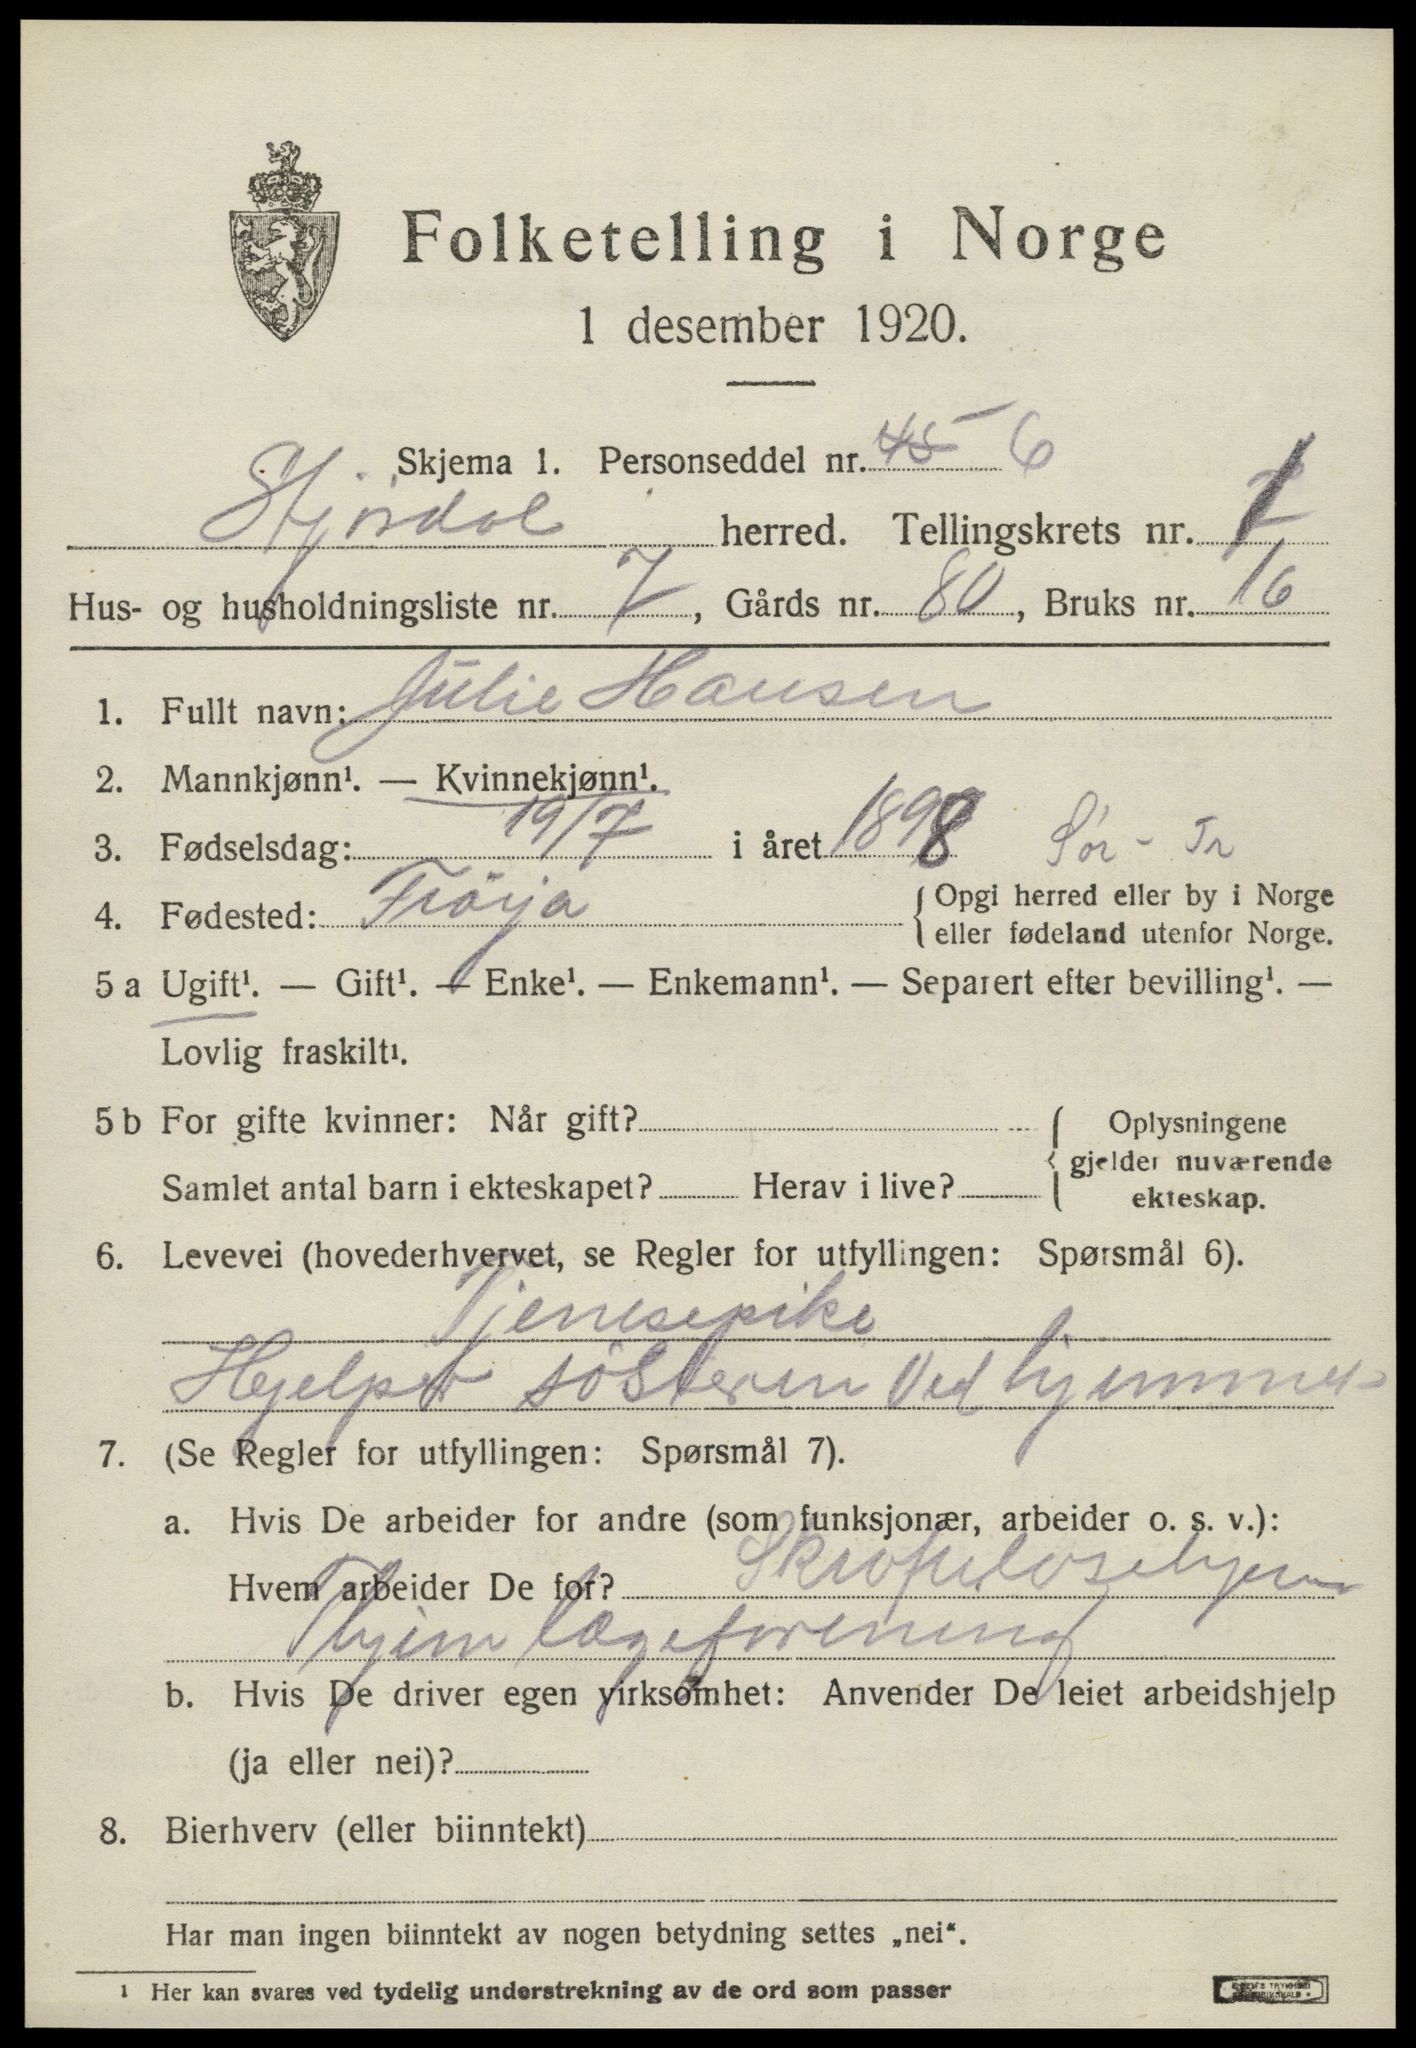 Folketelling i Norge
1 desember 1920.
Skjema 1. Personseddel nr. 45 6
Stjördal herred. Tellingskrets nr. 1
Hus- og husholdningsliste nr. 7, Gårds nr. 80, Bruks nr. 16
1. Fullt navn: Julie Hansen
2. Mannkjønn¹. — Kvinnekjønn¹.
3. Fødselsdag: 19/7 i året 1898 Sör-Tr
4. Fødested: Fröija {Opgi herred eller by i Norge
eller fødeland utenfor Norge.
5 a Ugift¹. — Gift¹. — Enke¹. — Enkemann¹. — Separert efter bevilling¹. —
Lovlig fraskilt¹.
5 b For gifte kvinner: Når gift? { Oplysningene
gjelder nuværende
Samlet antal barn i ekteskapet? Herav i live? ekteskap.
6. Levevei (hovederhvervet, se Regler for utfyllingen: Spørsmål 6).
Tjenesepike
Hjelper sösteren ved hjemmet
7. (Se Regler for utfyllingen: Spørsmål 7).
a. Hvis De arbeider for andre (som funksjonær, arbeider o. s. v.):
Hvem arbeider De for? Skrofulosehjem
Thjem lægeforening
b. Hvis De driver egen virksomhet: Anvender De leiet arbeidshjelp
(ja eller nei)?
8. Bierhverv (eller biinntekt)
Har man ingen biinntekt av nogen betydning settes „nei“.
¹ Her kan svares ved tydelig understrekning av de ord som passer